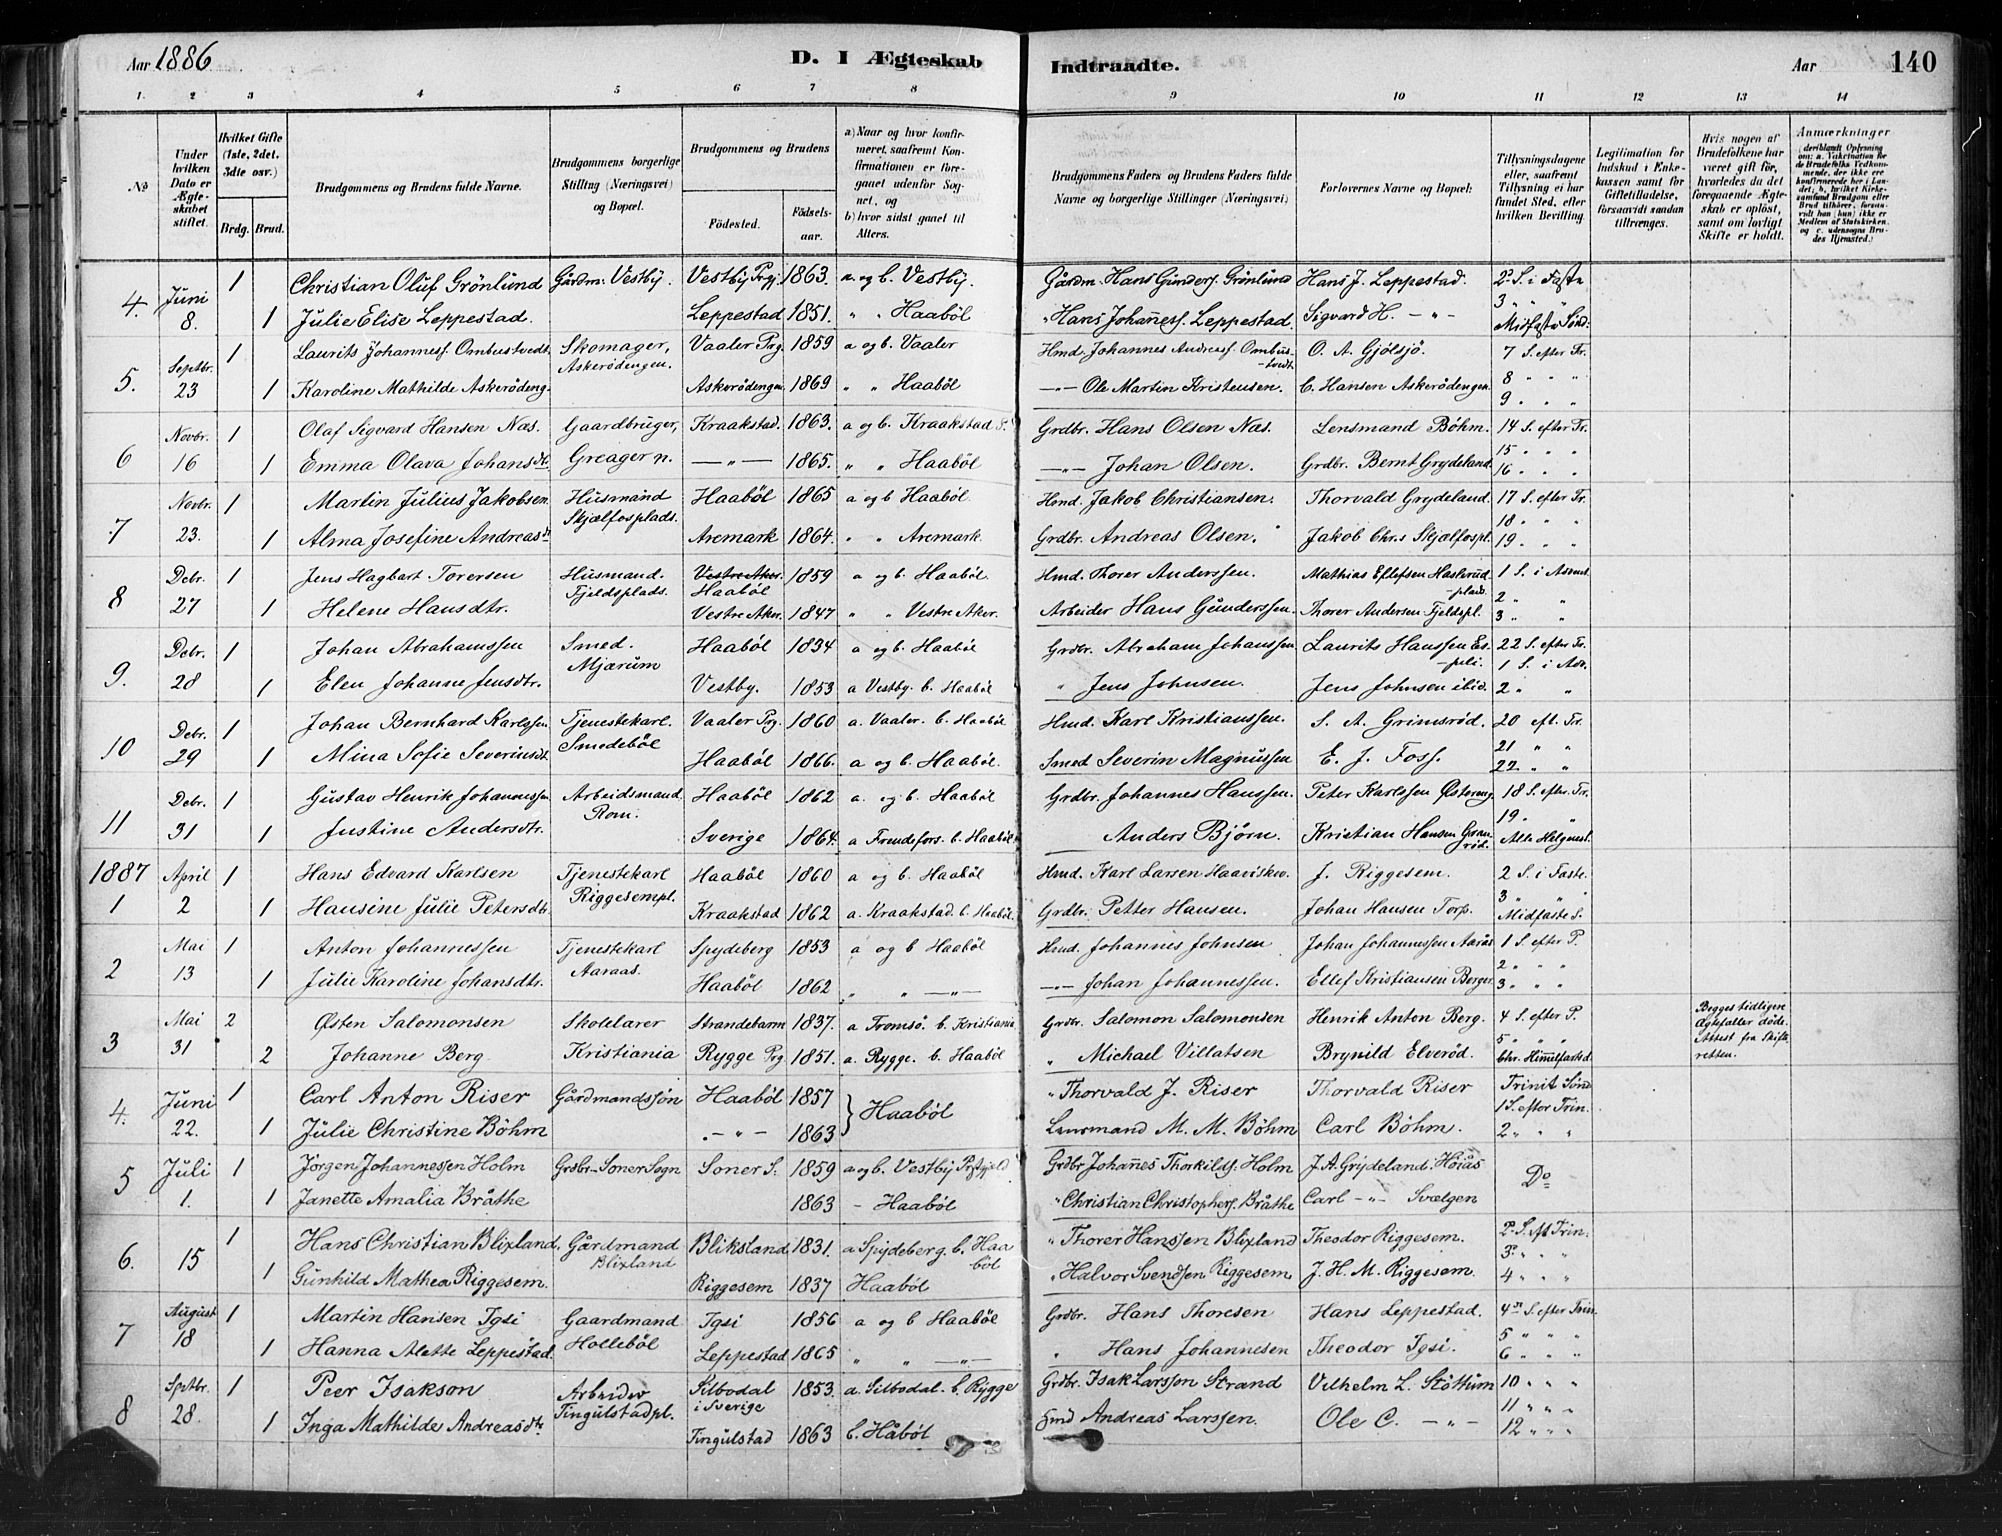 Aar 1886
D. I Ægteskab
Indtraadte.
Aar
140
1. 2 3 4 5 6 7 8 9 10 11 12 13 14
No
Under hvilken Dato er Ægteskabet stiftet.
Hvilket Gifte (1ste, 2det, 3die osv.)
Brdg. Brud.
Brudgommens og Brudens fulde Navne.
Brudgommens borgerlige Stilling (Næringsvei) og Bopæl.
Brudgommens og Brudens
Fødested.
Fødselsaar.
a) Naar og hvor konfirmeret, saafremt Konfirmationen er foregaaet udenfor Sognet, og
b) hvor sidst gaaet til Alters.
Brudgommens Faders og Brudens Faders fulde Navne og borgerlige Stillinger (Næringsvei)
Forlovernes Navne og Bopæl:
Tillysningsdagene eller, saafremt Tillysning ei har fundet Sted, efter hvilken Bevilling.
Legitimation for Indskud i Enkekassen samt for Giftetilladelse, forsaavidt saadan tiltrænges.
Hvis nogen af Brudefolkene har været gift før, hvorledes da det foregaaende Ægteskab er opløst, samt om lovligt Skifte er holdt.
Anmærkninger
4. Juni 8. 1 Christian Oluf Grönlund Gårdm: Vestby. Vestby Prgj. 1863. a og b. Vestby. Gårdm. Hans Gunders. Grönlund Hans J. Leppestad. 2 S. i Faste
1 Julie Elise Leppestad. Leppestad 1851. " " Haaböl " Hans Johañess. Leppestad Sigvard H. — " — 3 " " Midfaste Sönd:
5. Septbr. 23 1 Laurits Johanness. Ombustvedt Skomager, Askerödengen. Vaaler Prg. 1859 a og b. Vaaler Hmd. Johannes Andreass. Ombustvedt O. A. Gjölsjö. 7 S. efter Tr.
1 Karoline Mathilde Askerödeng. Askerödengen 1869 " " Haaböl —"— Ole Martin Kristensen. C. Hansen Askerödengen. 8 " " " 9 " " "
6 Novbr. 16 1 Olaf Sigvard Hansen Næs. Gaardbruger, Greager n. Kraakstad. 1863. a og b. Kraakstad S. Grdbr. Hans Olsen Næs. Lensmand Böhm. 14 S. efter Tr.
1 Emma Olava Johansdtr. — " — 1865. " " Haaböl —"— Johan Olsen. Grdbr. Bernt Grydeland. 15 " " " 16 " " "
7 Novbr. 23. 1 Martin Julius Jakobsen Husmand Skjælfosplads. Haaböl 1865 a og b Haaböl. Hmd. Jakob Christiansen. Thorvald Grydeland. 17 S. efter Tr.
1 Alma Josefine Andreasdt Aremark 1864. " " Aremark. Grdbr. Andreas Olsen. Jakob Chr.s Skjælfospl. 18 " " " 19 " " "
8 Debr. 27 1 Jens Hagbart Torersen Husmand. Fjeldsplads. Vestre Aker. Haaböl 1859 a og b. Haaböl. Hmd. Thorer Anderssen. Mathias Ellefsen Haslerudplads. 1 S. i Advent
1 Helene Hansdtr. Vestre Aker. 1847 " " Vestre Aker. Arbeider Hans Gunderssen. Thorer Andersen Fjeldspl. 2 " " 3 " "
9. Debr. 28 1 Johan Abrahamssen Smed. Mjærum Haaböl 1834 a og b. Haaböl Grdbr. Abraham Johanssen. Laurits Hanssen Espeli. 22 S. efter Tr. 1 S. i Adv.
1 Elen Johanne Jensdtr. Vestby. 1853 a Vestby. b. Haaböl " Jens Johnsen. Jens Johnsen ibid. 2 " "
10 Debr. 29 1 Johan Bernhard Karlssen Tjenestekarl. Smedeböl Vaaler Prg. 1860 a. Vaaler. b. Haaböl Hmd. Karl Kristianssen. S. A. Grimsröd. 20 eft. Tr.
1 Mina Sofie Severinsdt. Haaböl 1866. a og b. Haaböl. Smed Severin Magnussen E. J. Foss. 21 " " 22 " "
11 Debr. 31 1 Gustav Henrik Johannessen Arbeidsmand Rom. Haaböl 1862 a. og b. Haaböl Grdbr. Johannes Hanssen. Peter Karlssen Østereng. 18 S. efter Tr.
1 Justine Andersdtr. Sverige 1864. a Frendefors. b. Haaböl —— Anders Björn. Kristian Hansen Granröd. 19. " Alle Helgenst.
1887 1 April 2 1 Hans Edvard Karlsen Tjenestekarl Riggesempl. Haaböl 1860 a og b. Haaböl Hmd. Karl Larsen Haaviskov. J. Riggesem. 2 S. i Faste.
1 Hansine Julie Petersdtr. Kraakstad 1862 a. Kraakstad. b. Haaböl. Grdbr. Petter Hansen. Johan Hansen Torp. 3 " " Midfaste S.
2 Mai 13 1 Anton Johannessen Tjenestekarl Aaraas. Spydeberg 1853 a og b Haaböl Hmd. Johannes Johnsen Johan Johannessen Aarås 1 S. efter P.
1 Julie Karoline Johansdtr. Haaböl 1862 " " —"— —"— Johan Johannessen. Ellef Kristiansen Berger. 2 " " " 3 " " "
3 Mai 31 2 Østen Salomonsen Skolelærer Kristiania Strandebarm 1837. a Tromsö. b. Kristiania Grdbr. Salomon Salomonsen Henrik Anton Berg. 4 S. efter P. Begges tidligere Ægtefæller döde. Attest fra Skifteretten.
2 Johanne Berg. Rygge Prg. 1851. a. Rygge. b. Haaböl " Michael Villatsen Brynild Elveröd. 5 " " " Chr. Himmelfartsd.
4. Juni 22. 1 Carl Anton Riser Gårdmandssön Haaböl 1857 Haaböl " Thorvald J. Riser Thorvald Riser Trinit Sönd
1 Julie Christine Böhm — " — 1863 Lensmand M. M. Böhm Carl Böhm. 1 S. efter Trin. 2 " " "
5 Juli 1. 1 Jörgen Johannessen Holm Grdbr. Soner Sogn Soner S. 1859 a og b. Vestby Prstgjeld Grdbr Johañes Thorkilds. Holm J. A. Grydeland. Höiås Do
1 Janette Amalia Bråthe 1863 — Haaböl " Christian Christophers. Bråthe Carl —"— Svælgen
6. 15 1 Hans Christian Blixland. Gårdmand Blixland Bliksland 1831. a Spydeberg. b. Haaböl " Thorer Hanssen Blixland Theodor Riggesem. 2 S. eft Trin.
1 Gunhild Mathea Riggesem. Riggesem 1837 Haaböl " Halvor Svendsen Riggesem J. H. M. Riggesem. 3 " " " 4 " " "
7 August 18 1 Martin Hansen Igsi Gaardmand Holleböl Igsi 1856 a og b Haaböl Grdbr. Hans Thoresen Hans Leppestad. 4 S. efter Trin
1 Hanna Alette Leppestad. Leppestad 1865 " " —"— " Hans Johannesen Theodor Igsi. 5 " " " 6 " " "
8 Septbr. 28. 1 Peer Isakson Arbeider Tingulstadpl. Silbodal i Sverige 1853. a. Silbodal. b. Rygge Grdbr. Isak Larsson Strand Vilhelm L. Stöttum 10 " " "
1 Inga Mathilde Andreasdtr. Tingulstad 1863 b. Håböl Hmd Andreas Larssen. Ole C. — " — 11 " " " 12 " " "